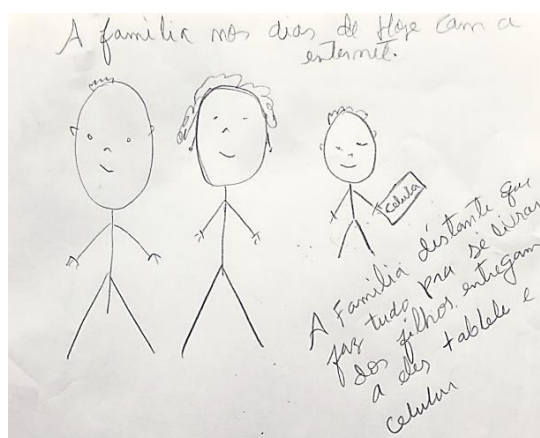 A familia nos dias de Hoje Com a
enternet.
Celular
A Familia distante que
faz tudo pra se livrar
dos filhos. entregam
a eles tablete e
celular